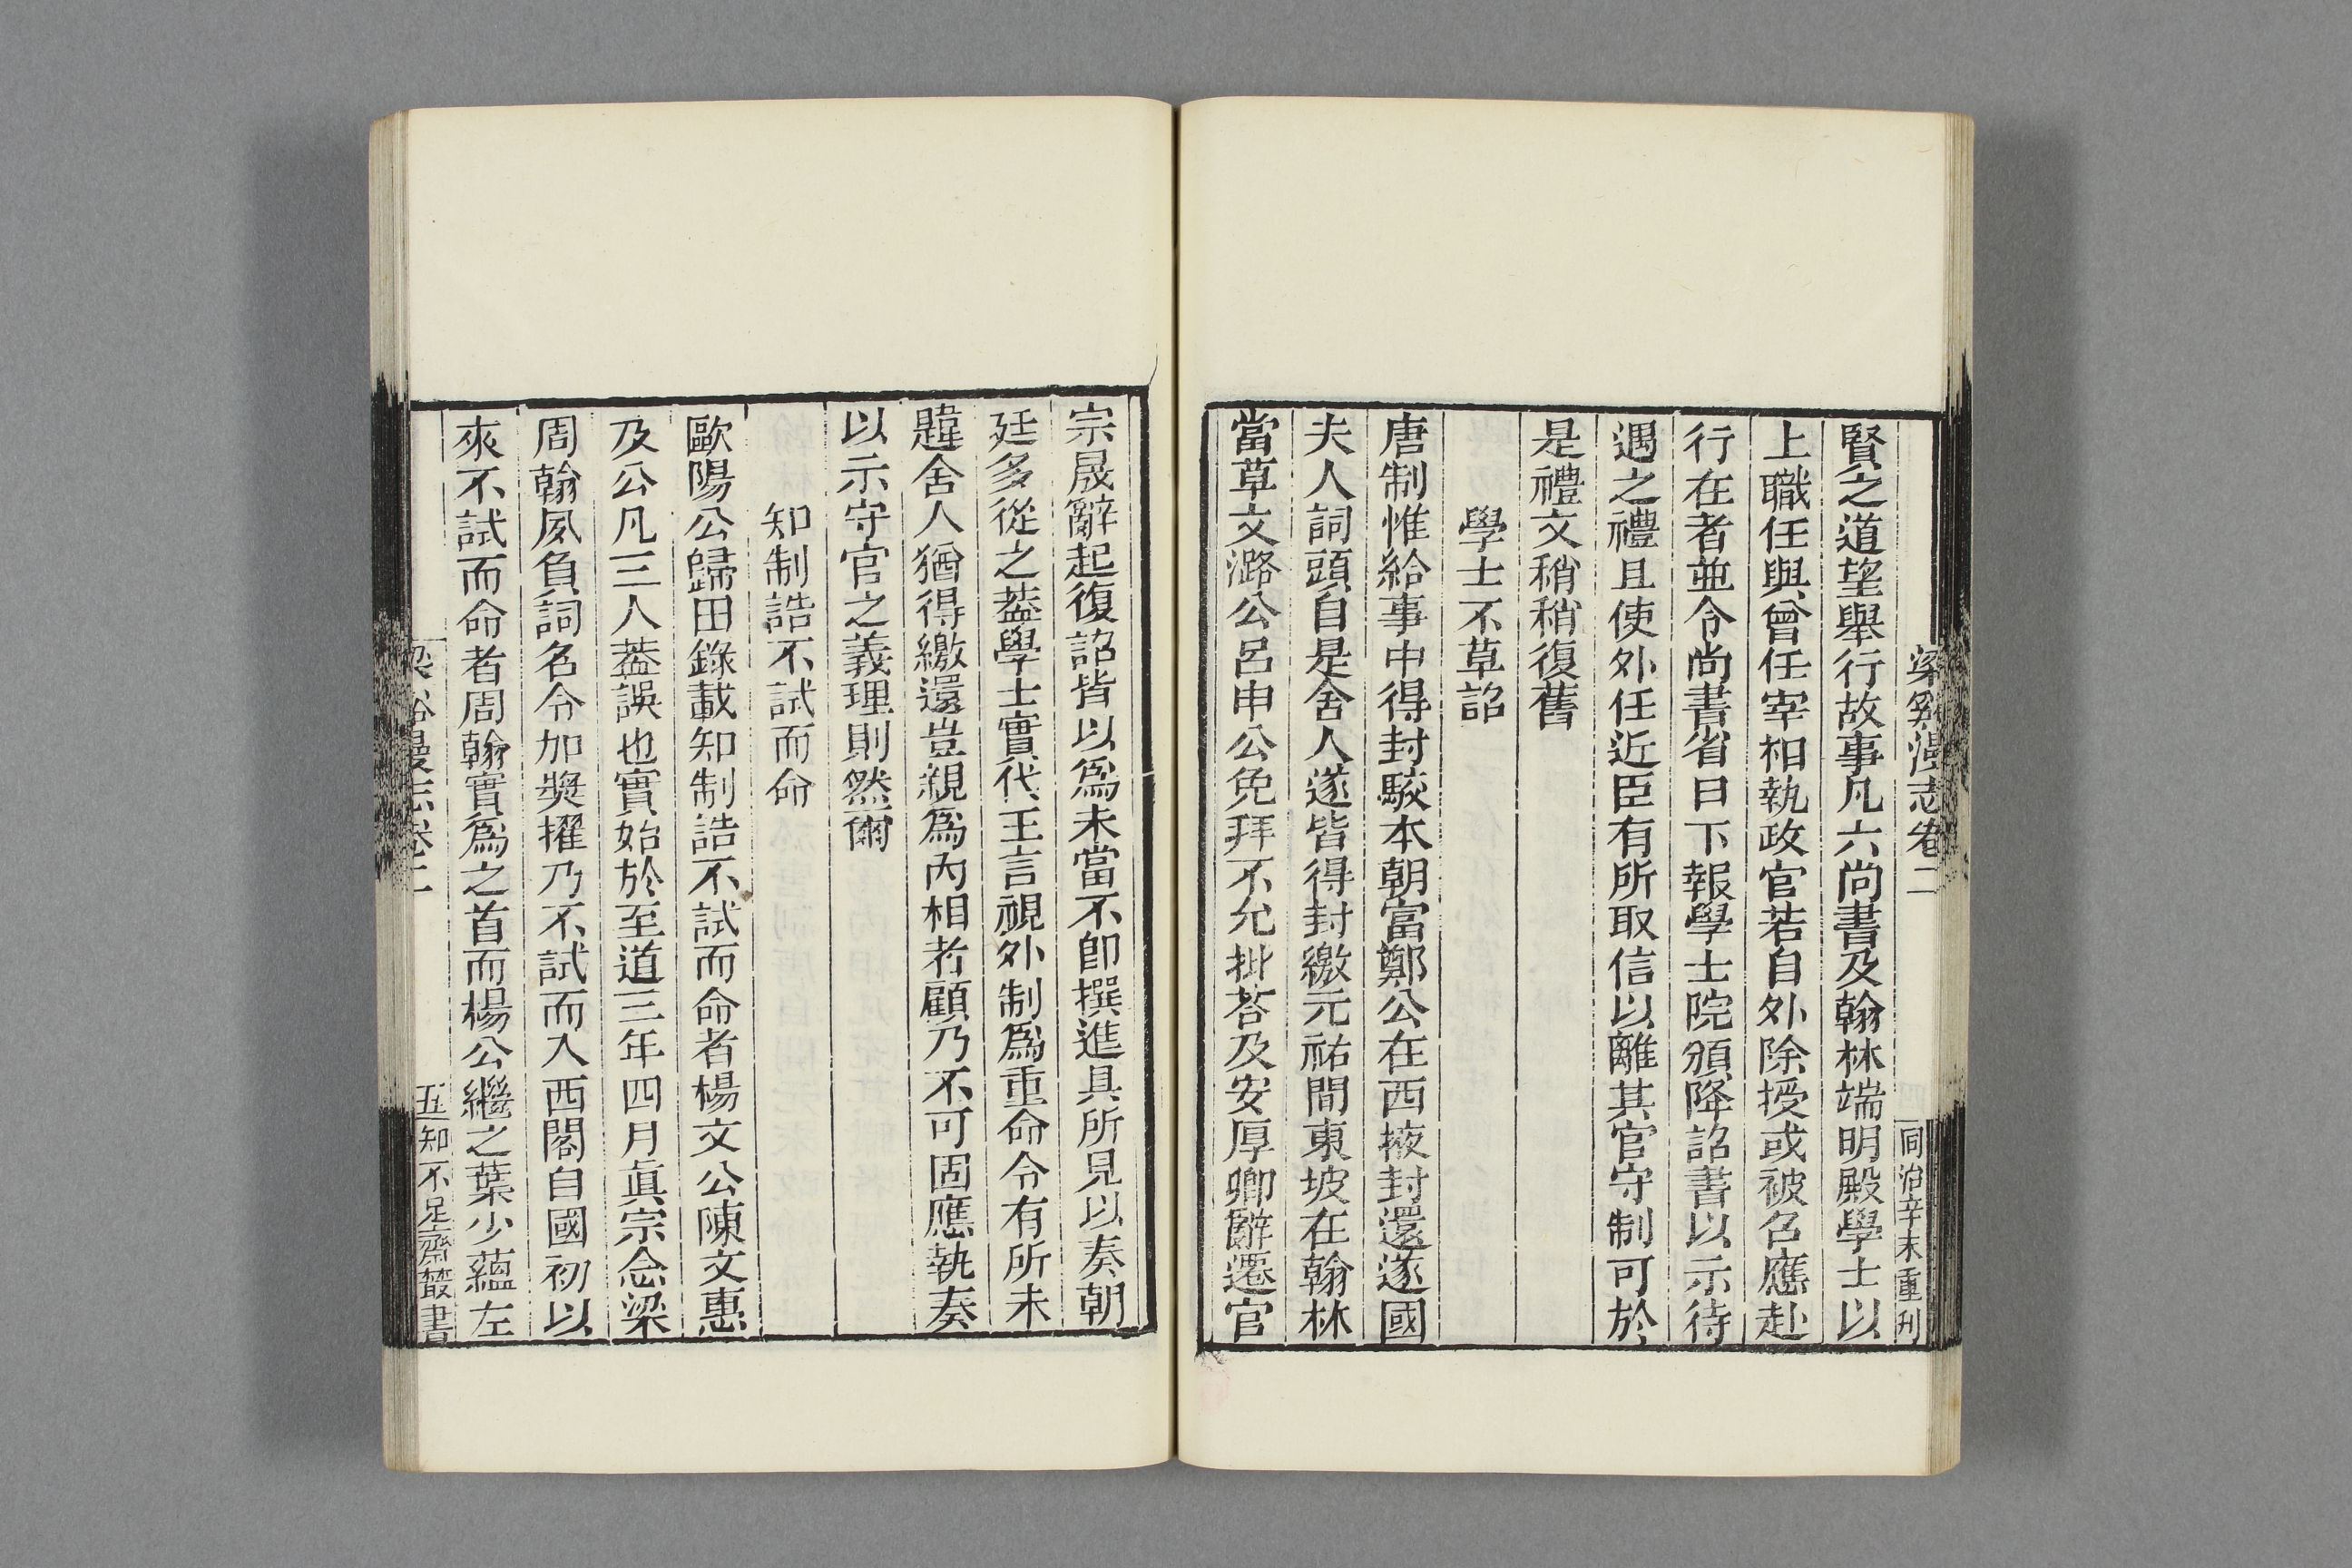 梁谿漫志卷二
同治辛未重刋
賢之道望舉行故事凡六尚書及翰林端明殿學士以
上職任與曾任宰相執政官若自外除授或被召應赴
行在者並令尚書省日下報學士院頒降詔書以示待
遇之禮且使外任近臣有所取信以離其官守制可於
是禮文稍稍復舊
學士不草詔
唐制惟給事中得封駮本朝富鄭公在西掖封還遂國
夫人詞頭自是舍人遂皆得封繳元祐間東坡在翰林
當草文潞公呂申公免拜不允批荅及安厚卿辭遷官
宗晟辭起復詔皆以爲未當不卽撰進具所見以奏朝
廷多從之葢學士實代王言視外制爲重命令有所未
韙舍人猶得繳還豈親爲內相者顧乃不可固應執奏
以示守官之義理則然爾
知制誥不試而命
歐陽公歸田錄載知制誥不試而命者楊文公陳文惠
及公凡三人葢誤也實始於至道三年四月眞宗念梁
周翰夙負詞名令加奬擢乃不試而入西閣自國初以
來不試而命者周翰實爲之首而楊公繼之葉少蘊左
梁谿漫志卷二
五
知不足齋叢書